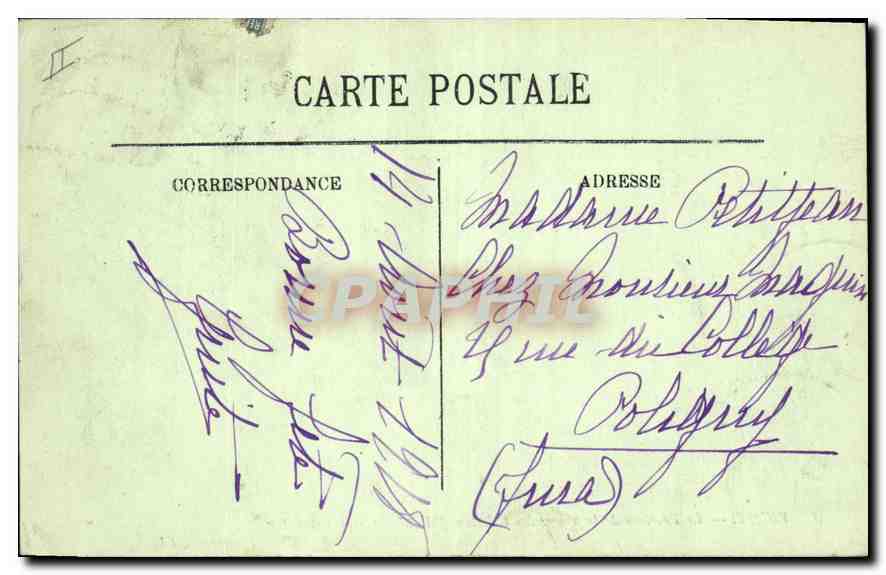 II
CARTE POSTALE
CORRESPONDANCE
14 Août 1918
Bonne fête
ADRESSE
Madame Petitjean
Chez Monsieur Maguin
4 rue du Collège
Poligny
(Jura)
CPAPHIL